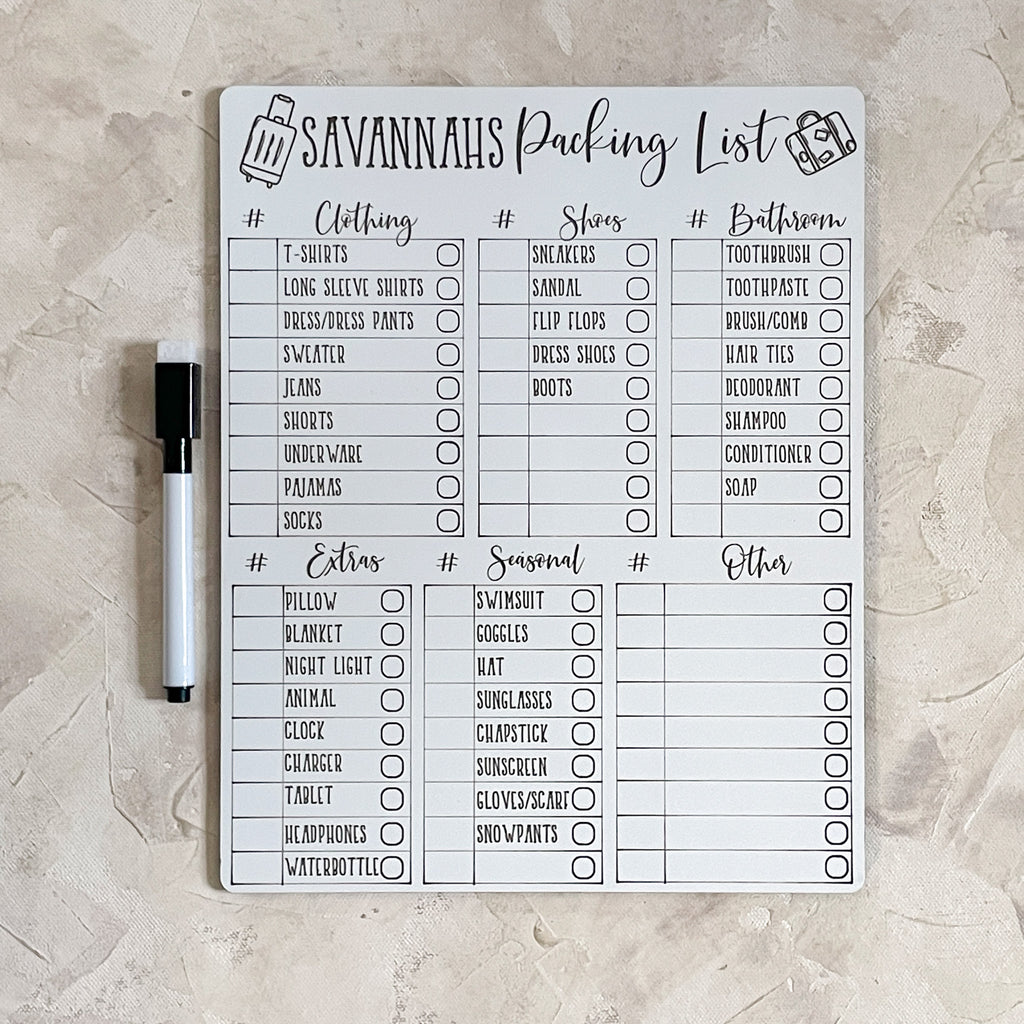 SAVANNAHS Packing List
# Clothing
T-SHIRTS
LONG SLEEVE SHIRTS
DRESS/DRESS PANTS
SWEATER
JEANS
SHORTS
UNDERWARE
PAJAMAS
SOCKS
# Shoes
SNEAKERS
SANDAL
FLIP FLOPS
DRESS SHOES
BOOTS
# Bathroom
TOOTHBRUSH
TOOTHPASTE
BRUSH/COMB
HAIR TIES
DEODORANT
SHAMPOO
CONDITIONER
SOAP
# Extras
PILLOW
BLANKET
NIGHT LIGHT
ANIMAL
CLOCK
CHARGER
TABLET
HEADPHONES
WATERBOTTLE
# Seasonal
SWIMSUIT
GOGGLES
HAT
SUNGLASSES
CHAPSTICK
SUNSCREEN
GLOVES/SCARF
SNOWPANTS
# Other